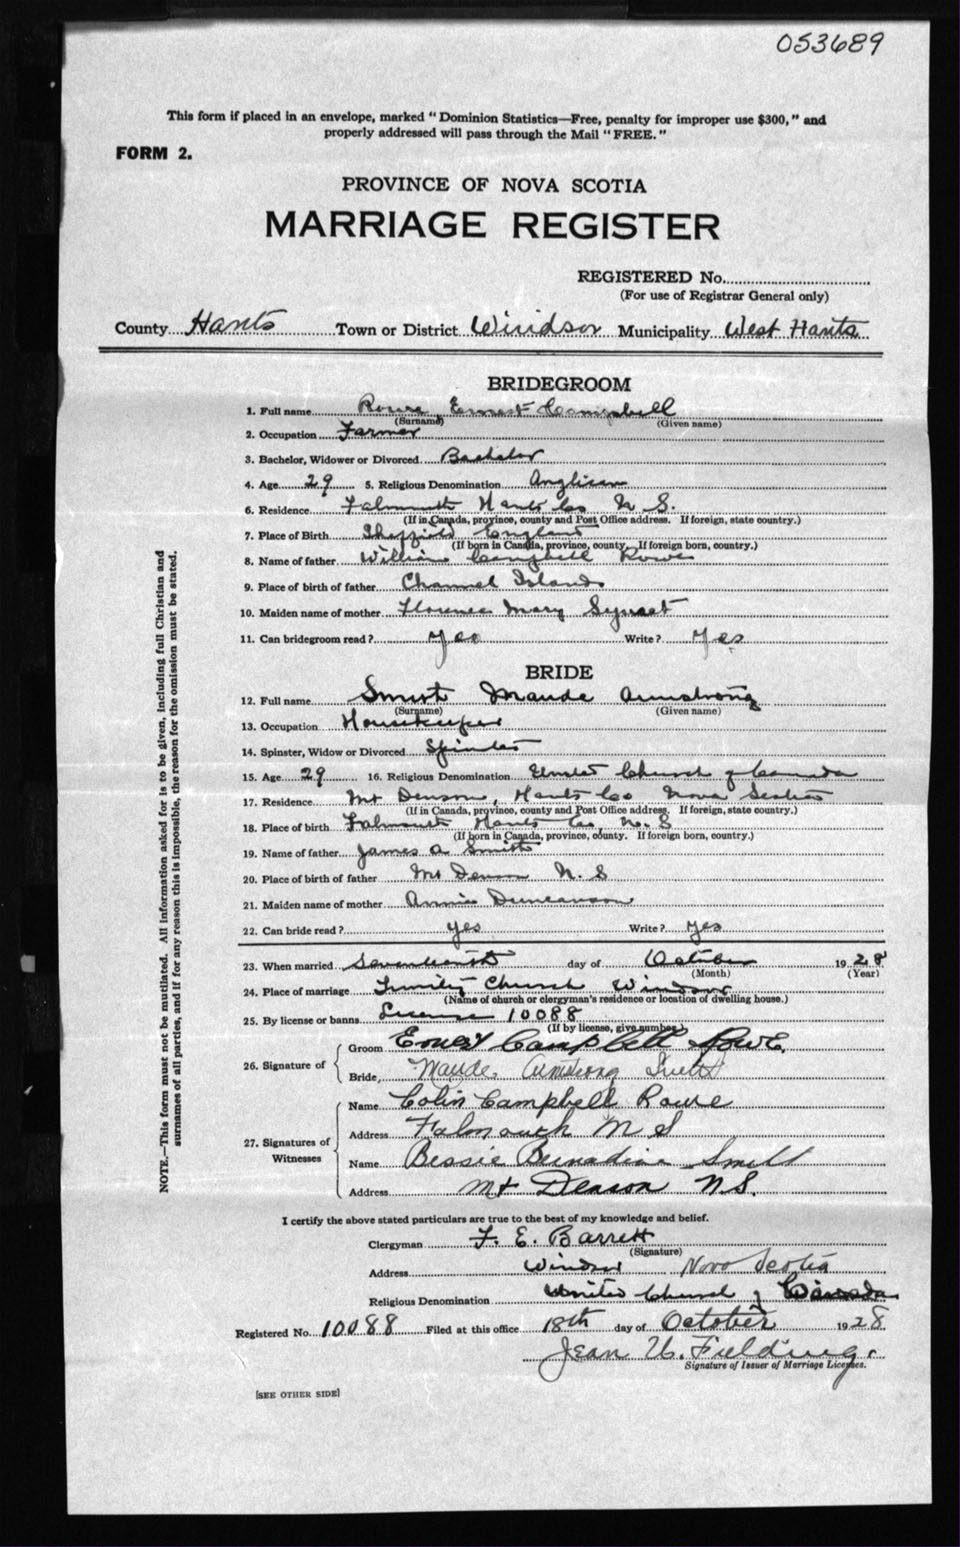 053689
This form if placed in an envelope, marked "Dominion Statistics—Free, penalty for improper use $300," and
properly addressed will pass through the Mail "FREE."
FORM 2.
PROVINCE OF NOVA SCOTIA
MARRIAGE REGISTER
REGISTERED No.
(For use of Registrar General only)
County Hants Town or District Windsor Municipality West Hants
BRIDEGROOM
1. Full name Rowe Ernest Campbell
(Surname) (Given name)
2. Occupation Farmer
3. Bachelor, Widower or Divorced Bachelor
4. Age 29 5. Religious Denomination Anglican
6. Residence Falmouth Hants Co N. S.
(If in Canada, province, county and Post Office address. If foreign, state country.)
7. Place of Birth Sheffield England
(If born in Canada, province, county. If foreign born, country.)
8. Name of father William Campbell Rowe
9. Place of birth of father Channel Islands
10. Maiden name of mother Florence Mary
11. Can bridegroom read? Yes Write? Yes
BRIDE
12. Full name Smith Maude Armstrong
(Surname) (Given name)
13. Occupation Housekeeper
14. Spinster, Widow or Divorced Spinster
15. Age 29 16. Religious Denomination United Church of Canada
17. Residence Mt Denson, Hants Co Nova Scotia
(If in Canada, province, county and Post Office address. If foreign, state country.)
18. Place of birth Falmouth Hants Co N. S
(If born in Canada, province, county. If foreign born, country.)
19. Name of father James A Smith
20. Place of birth of father Mt Denson N. S
21. Maiden name of mother Annie Duncanson
22. Can bride read? Yes Write? Yes
23. When married Seventeenth day of October 1928
(Month) (Year)
24. Place of marriage Trinity Church Windsor
(Name of church or clergyman's residence or location of dwelling house.)
25. By license or banns License 10088
(If by license, give number)
26. Signature of
Groom Ernest Campbell Rowe.
Bride, Maude Armstrong Smith
27. Signatures of Witnesses
Name Colin Campbell Rowe
Address Falmouth N S
Name Bessie Bernadine Smith
Address Mt Denson N.S.
I certify the above stated particulars are true to the best of my knowledge and belief.
Clergyman F. E. Barrett
(Signature)
Address Windsor Nova Scotia
Religious Denomination United Church of Canada
Registered No. 10088 Filed at this office 18th day of October 1928
Jean U. Fielding.
Signature of Issuer of Marriage Licenses.
[SEE OTHER SIDE]
NOTE.—This form must not be mutilated. All information asked for is to be given, including full Christian and
surnames of all parties, and if for any reason this is impossible, the reason for the omission must be stated.